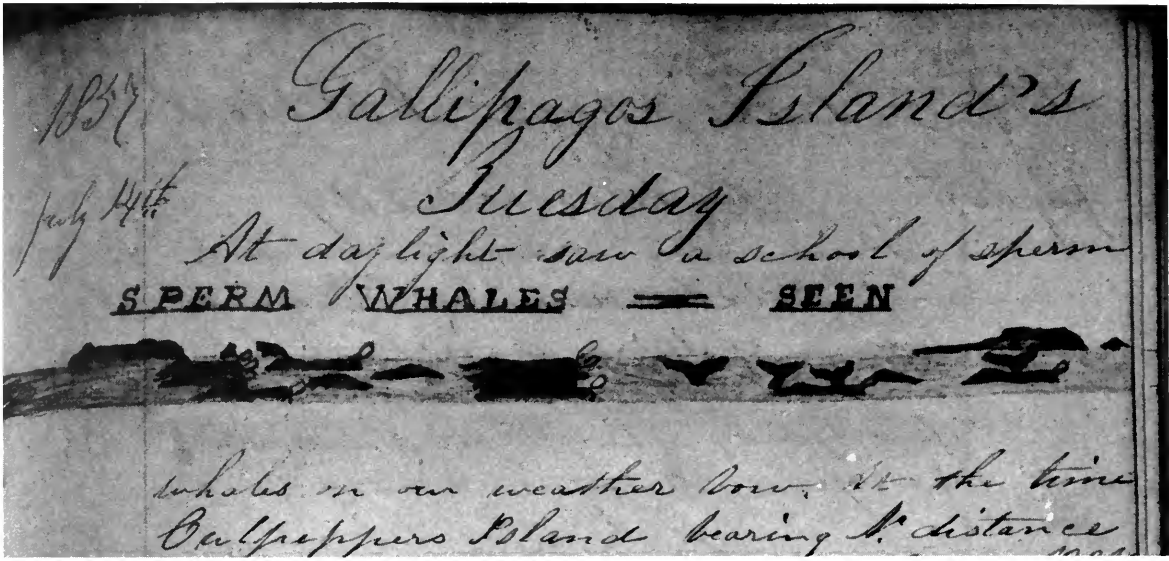 1857
Gallipagos Island's
July 14th
Tuesday
At daylight saw a school of sperm
SPERM WHALES = SEEN
whales on our weather bow. At the time
Culpeppers Island bearing N. distance